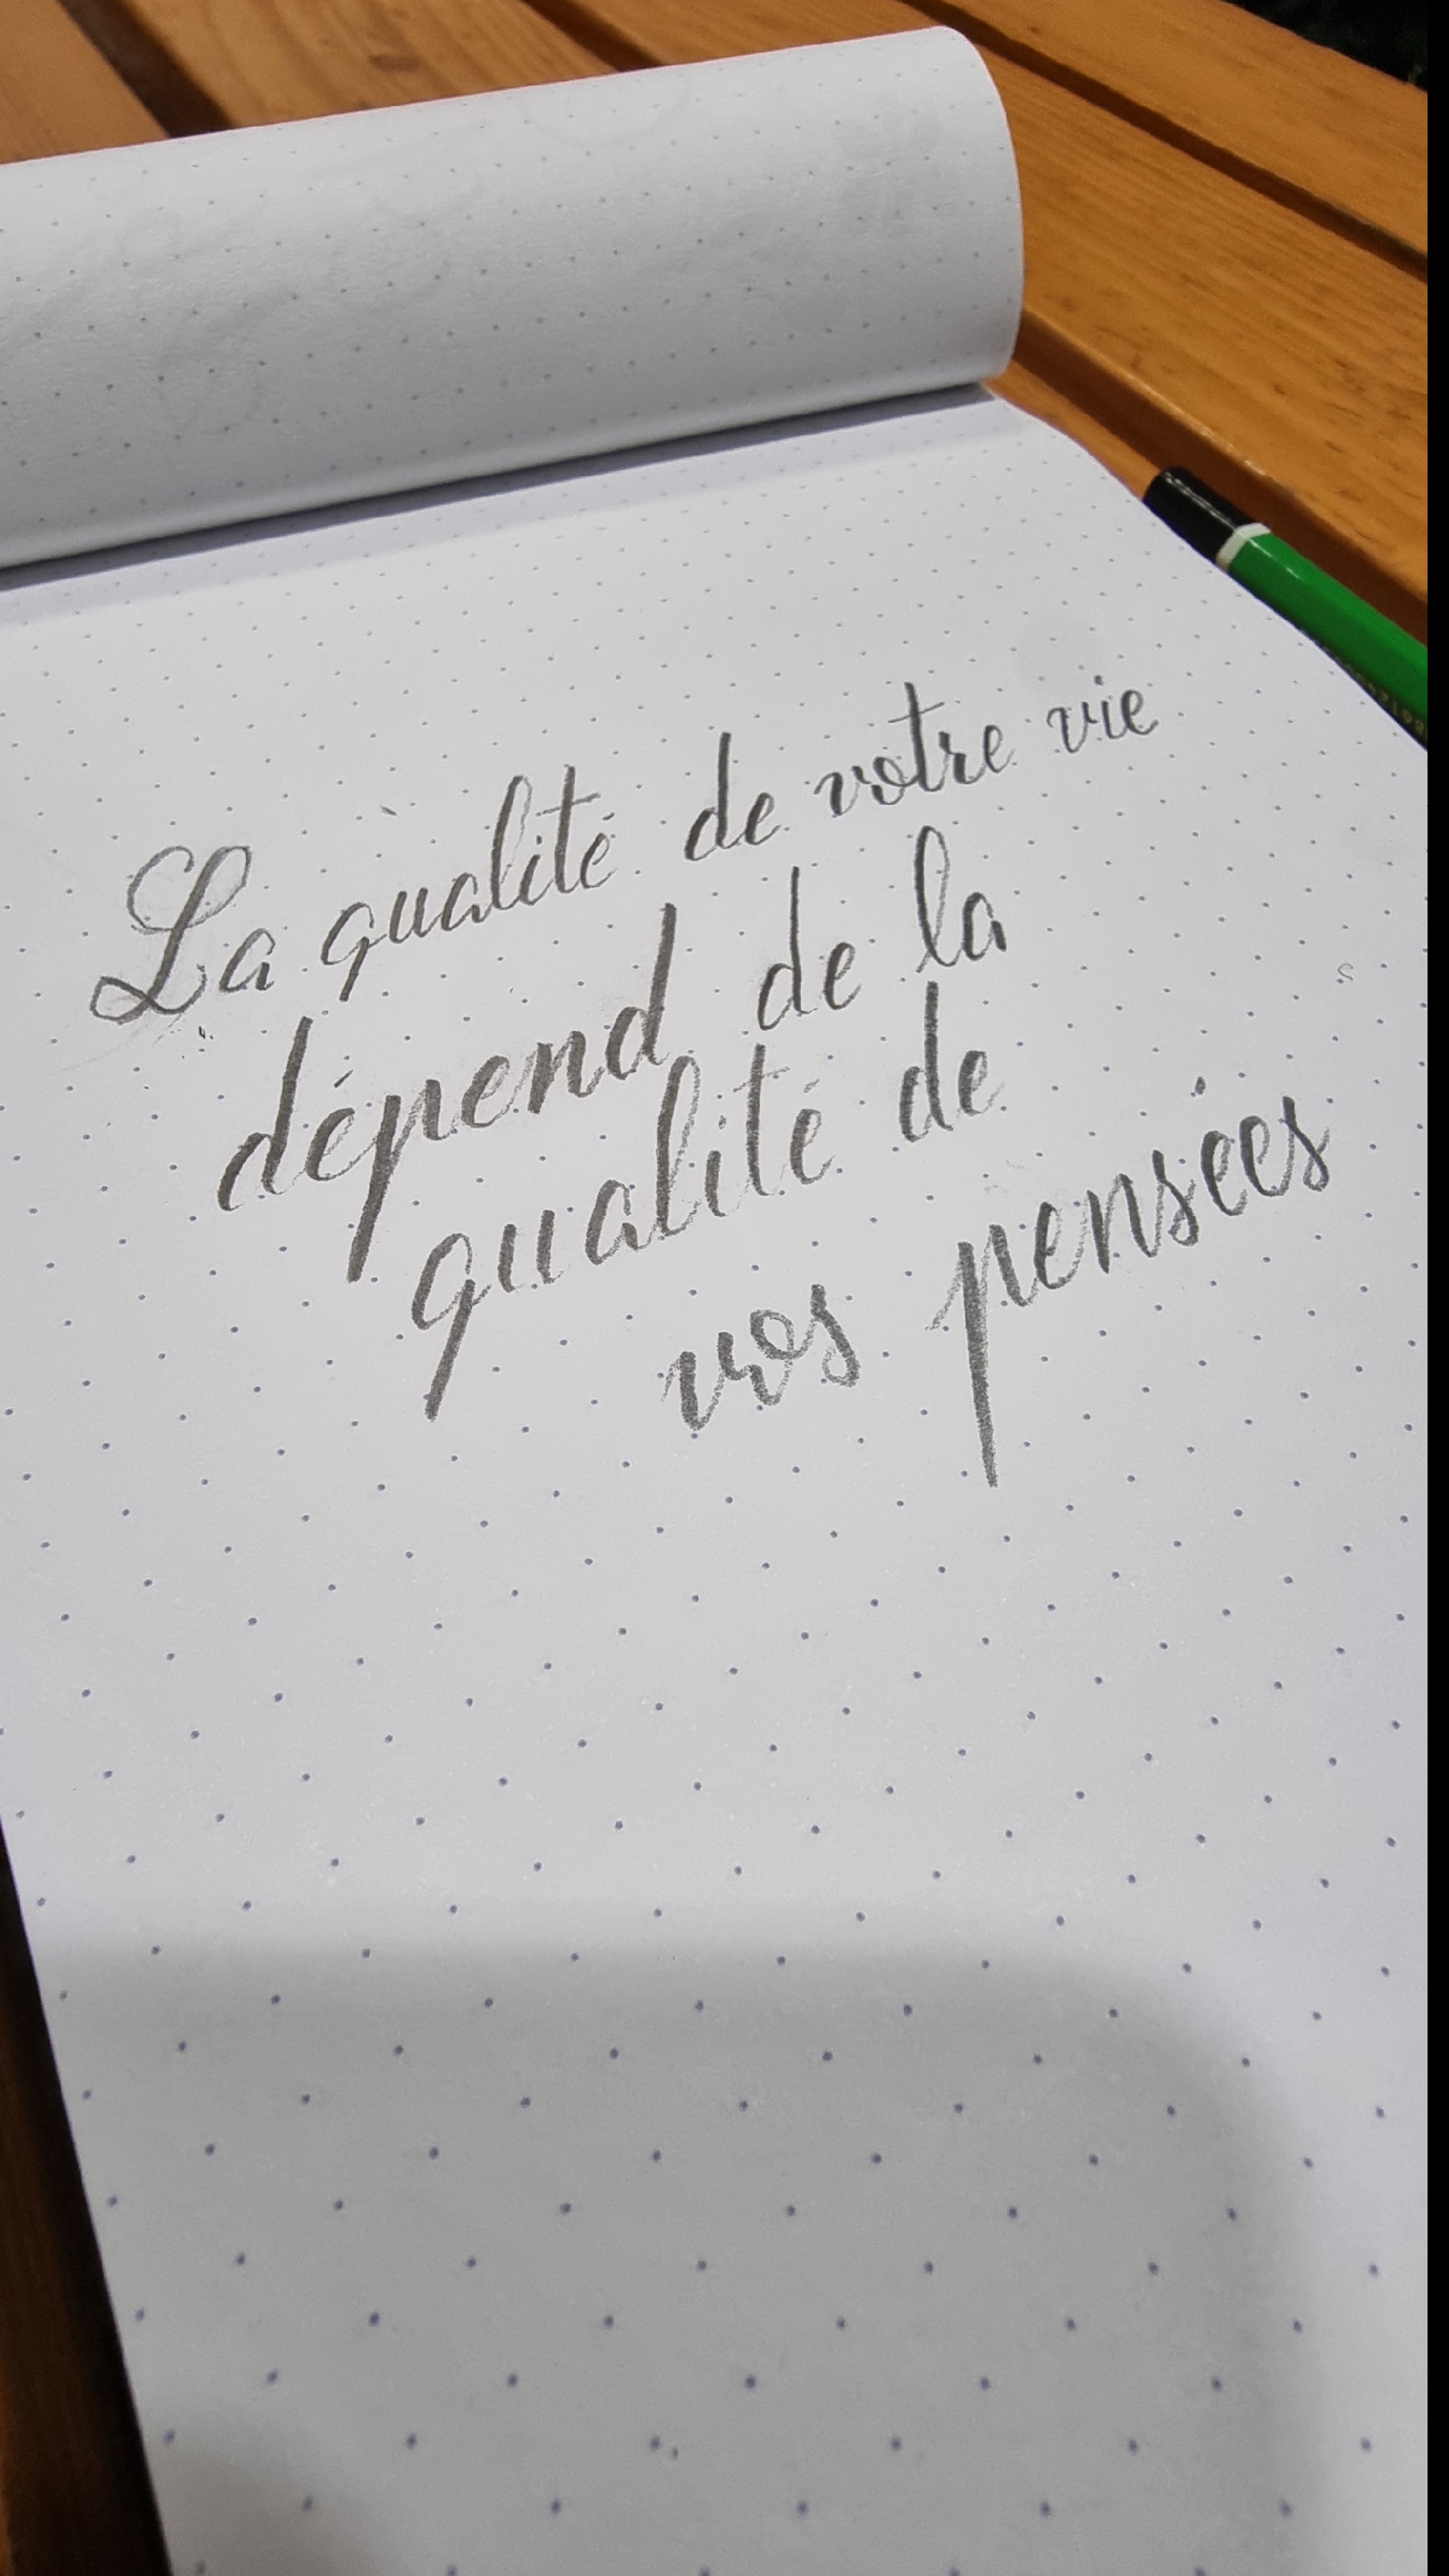 La qualité de votre vie
dépend de la
qualité de
vos pensées